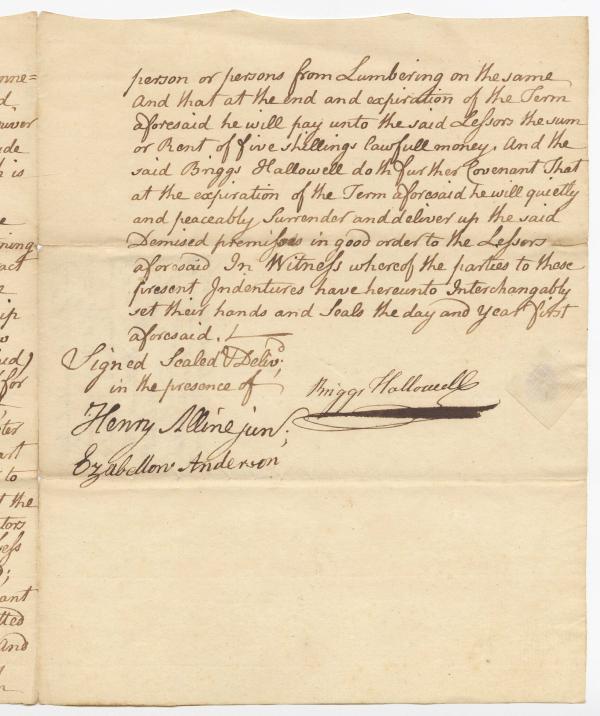 person or persons from Lumbering on the same
And that at the end and expiration of the Term
aforesaid he will pay unto the said Lessors the sum
or Rent of five shillings lawfull money. And the
said Briggs Hallowell doth further Covenant That
at the expiration of the Term aforesaid he will quietly
and peaceably Surrender and deliver up the said
Demised premisses in good order to the Lessors
aforesaid In Witness whereof the parties to these
present Indentures have hereunto Interchangably
set their hands and Seals the day and Year first
aforesaid.
Signed Sealed & Delivd;
in the presence of
Briggs Hallowell
Henry Alline jun;
Anderson
nne=
ude
h is
ning
act
ip
aid,
(for
ter
art
to
t the
tors
ant
tted
And